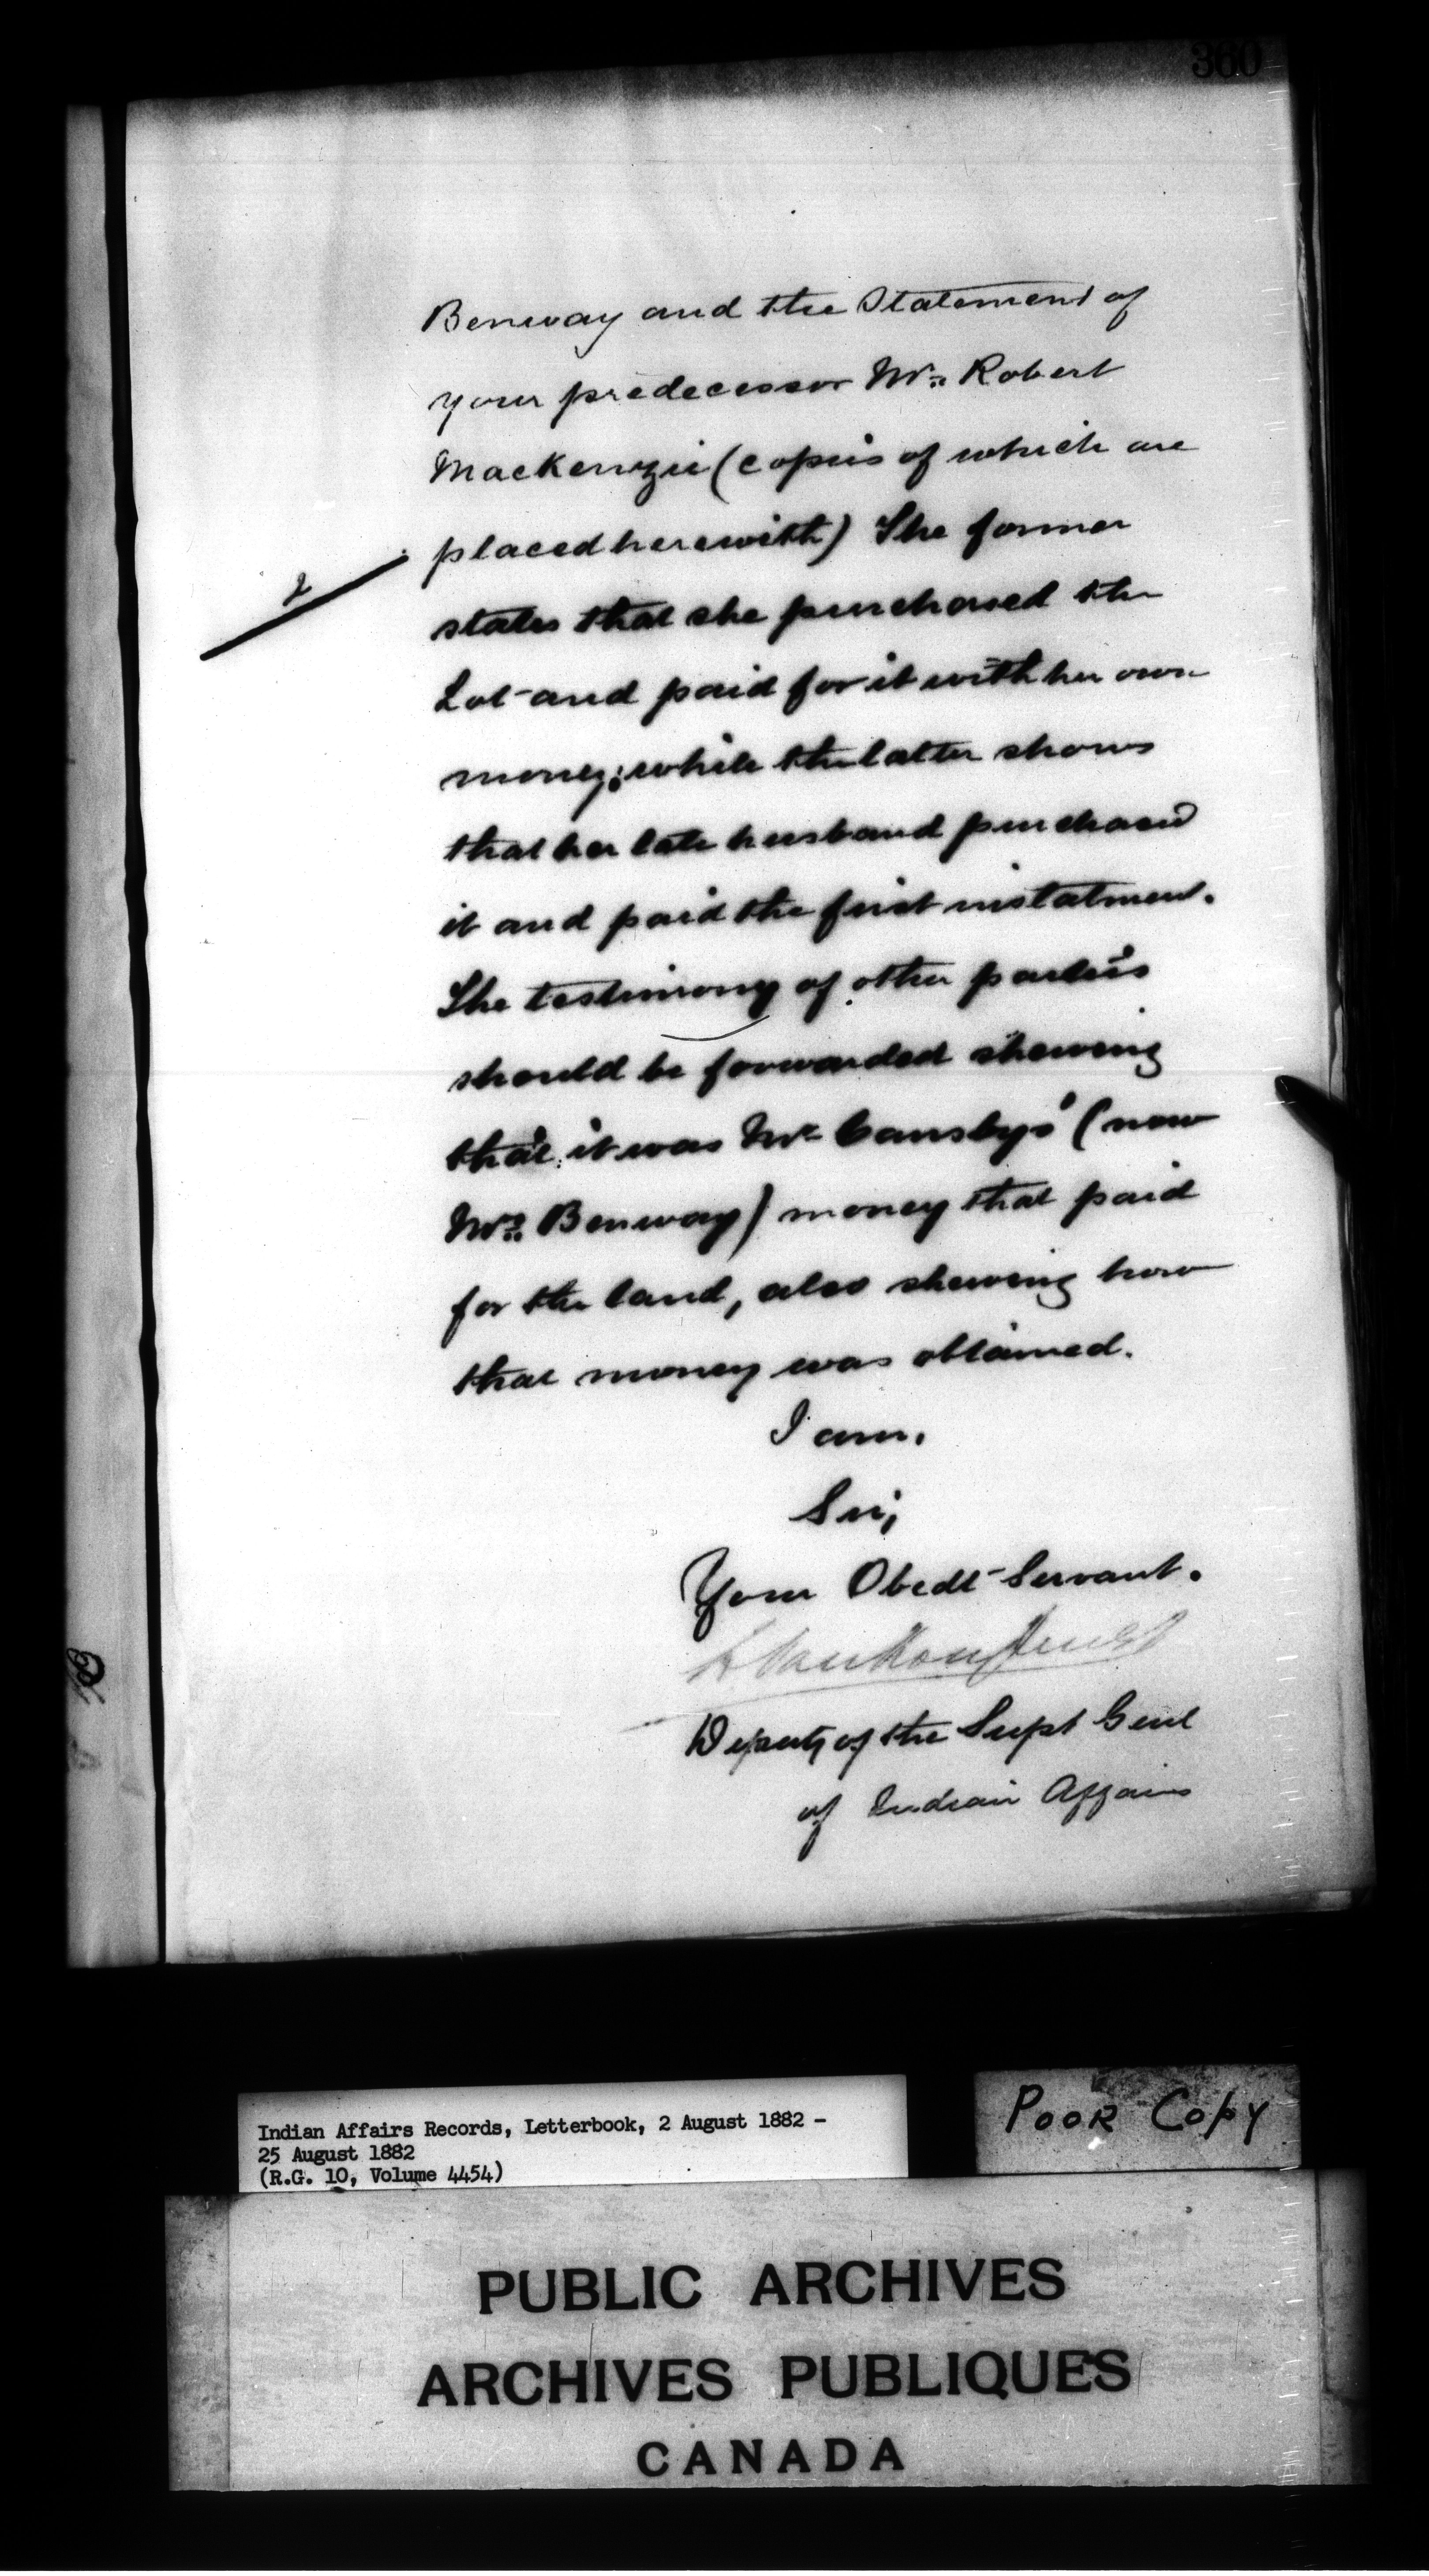 360
Benway and the Statement of
your predecessor Mr. Robert
MacKenzie (copies of which are
placed herewith) The former
2
states that she purchased the
Lot and paid for it with her own
money; while the latter shows
that her late husband purchased
it and paid the first instalment.
The testimony of other parties
should be forwarded shewing
that it was Mrs Cansbys' (now
Mrs. Benway) money that paid
for the land, also shewing how
that money was obtained.
I am.
Sir,
Your Obedt Servant.
L Vankoughnet
Deputy of the Supt Genl
of Indian Affairs
Indian Affairs Records, Letterbook, 2 August 1882 -
25 August 1882
(R.G. 10, Volume 4454)
POOR COPY
PUBLIC ARCHIVES
ARCHIVES PUBLIQUES
CANADA